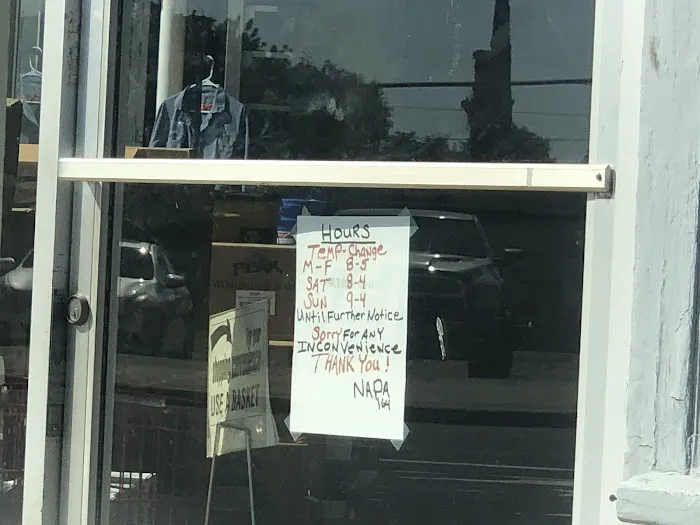 HOURS
TEMP-Change
M-F 8-5
SAT 8-4
SUN 9-4
Until Further Notice
Sorry For ANY
INCONVenience
THANK YOU!
NAPA
PEAK
for your
shopping convenience
USE A BASKET